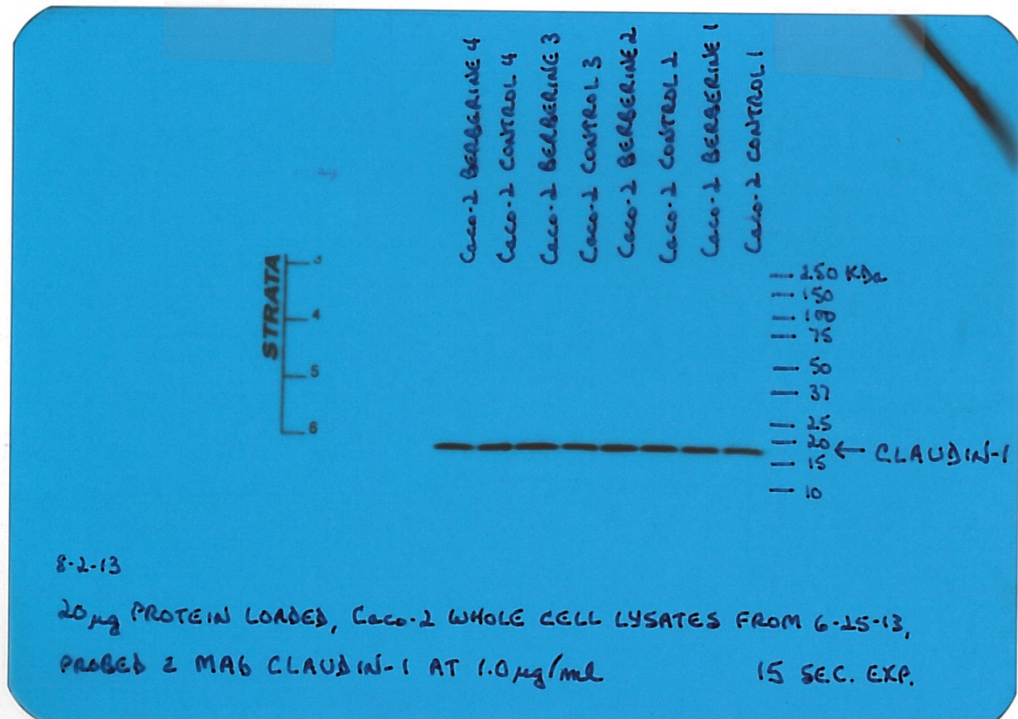 Caco-2 BERBERINE 4
Caco-2 CONTROL 4
Caco-2 BERBERINE 3
Caco-2 CONTROL 3
Caco-2 BERBERINE 2
Caco-2 CONTROL 2
Caco-2 BERBERINE 1
Caco-2 CONTROL 1
STRATA
3
4
5
6
250 KDa
150
100
75
50
37
25
20 ← CLAUDIN-1
15
10
8-2-13
20 µg PROTEIN LOADED, Caco-2 WHOLE CELL LYSATES FROM 6-25-13,
PROBED CLAUDIN-1 AT 1.0 µg/ml 15 SEC. EXP.